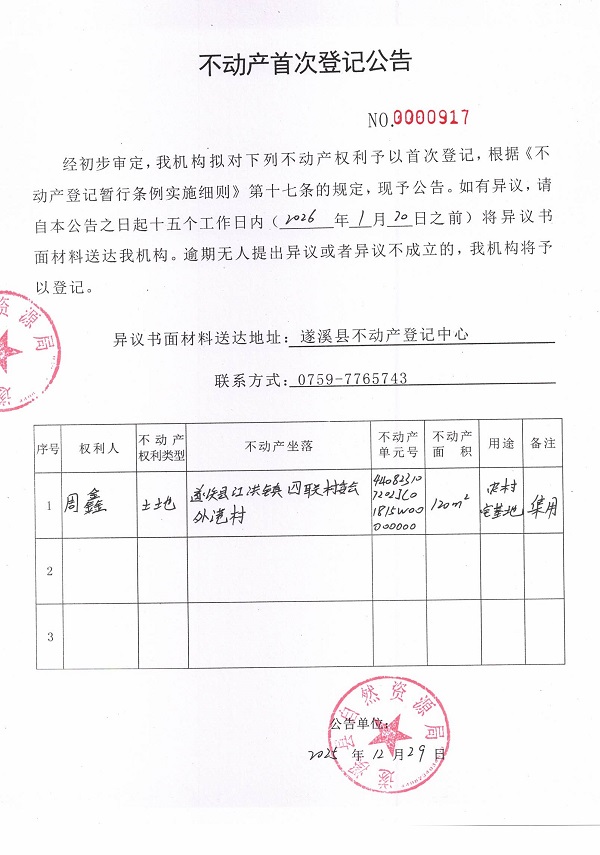 不动产首次登记公告
NO.0000917
经初步审定，我机构拟对下列不动产权利予以首次登记，根据《不
动产登记暂行条例实施细则》第十七条的规定，现予公告。如有异议，请
自本公告之日起十五个工作日内（2026年1月20日之前）将异议书
面材料送达我机构。逾期无人提出异议或者异议不成立的，我机构将予
以登记。
异议书面材料送达地址：遂溪县不动产登记中心
联系方式：0759-7765743
序号 权利人 不动产权利类型 不动产坐落 不动产单元号 不动产面积 用途 备注
1 周鑫 土地 遂溪县江洪镇四联村委会 120m² 农村宅基地 集用
外港村
2
3
公告单位：
2025年12月29日
遂溪县自然资源局